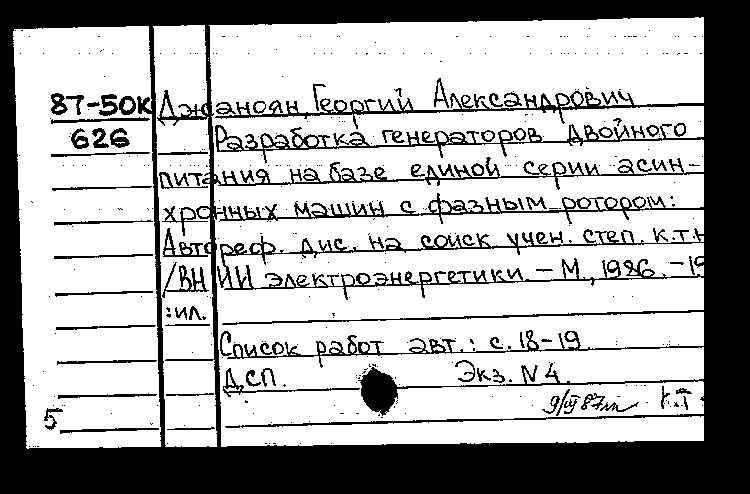 87-50К Джаноян, Георгий Александрович
626 Разработка генераторов двойного
питания на базе единой серии асин-
хронных машин с фазным ротором:
Автореф. дис. на соиск учен. степ. к.т.н
/ВНИИ электроэнергетики. - М., 1986. - 19
: ил.
Список работ авт.: с. 18-19
ДСП. Экз. N 4.
К.Т.
5